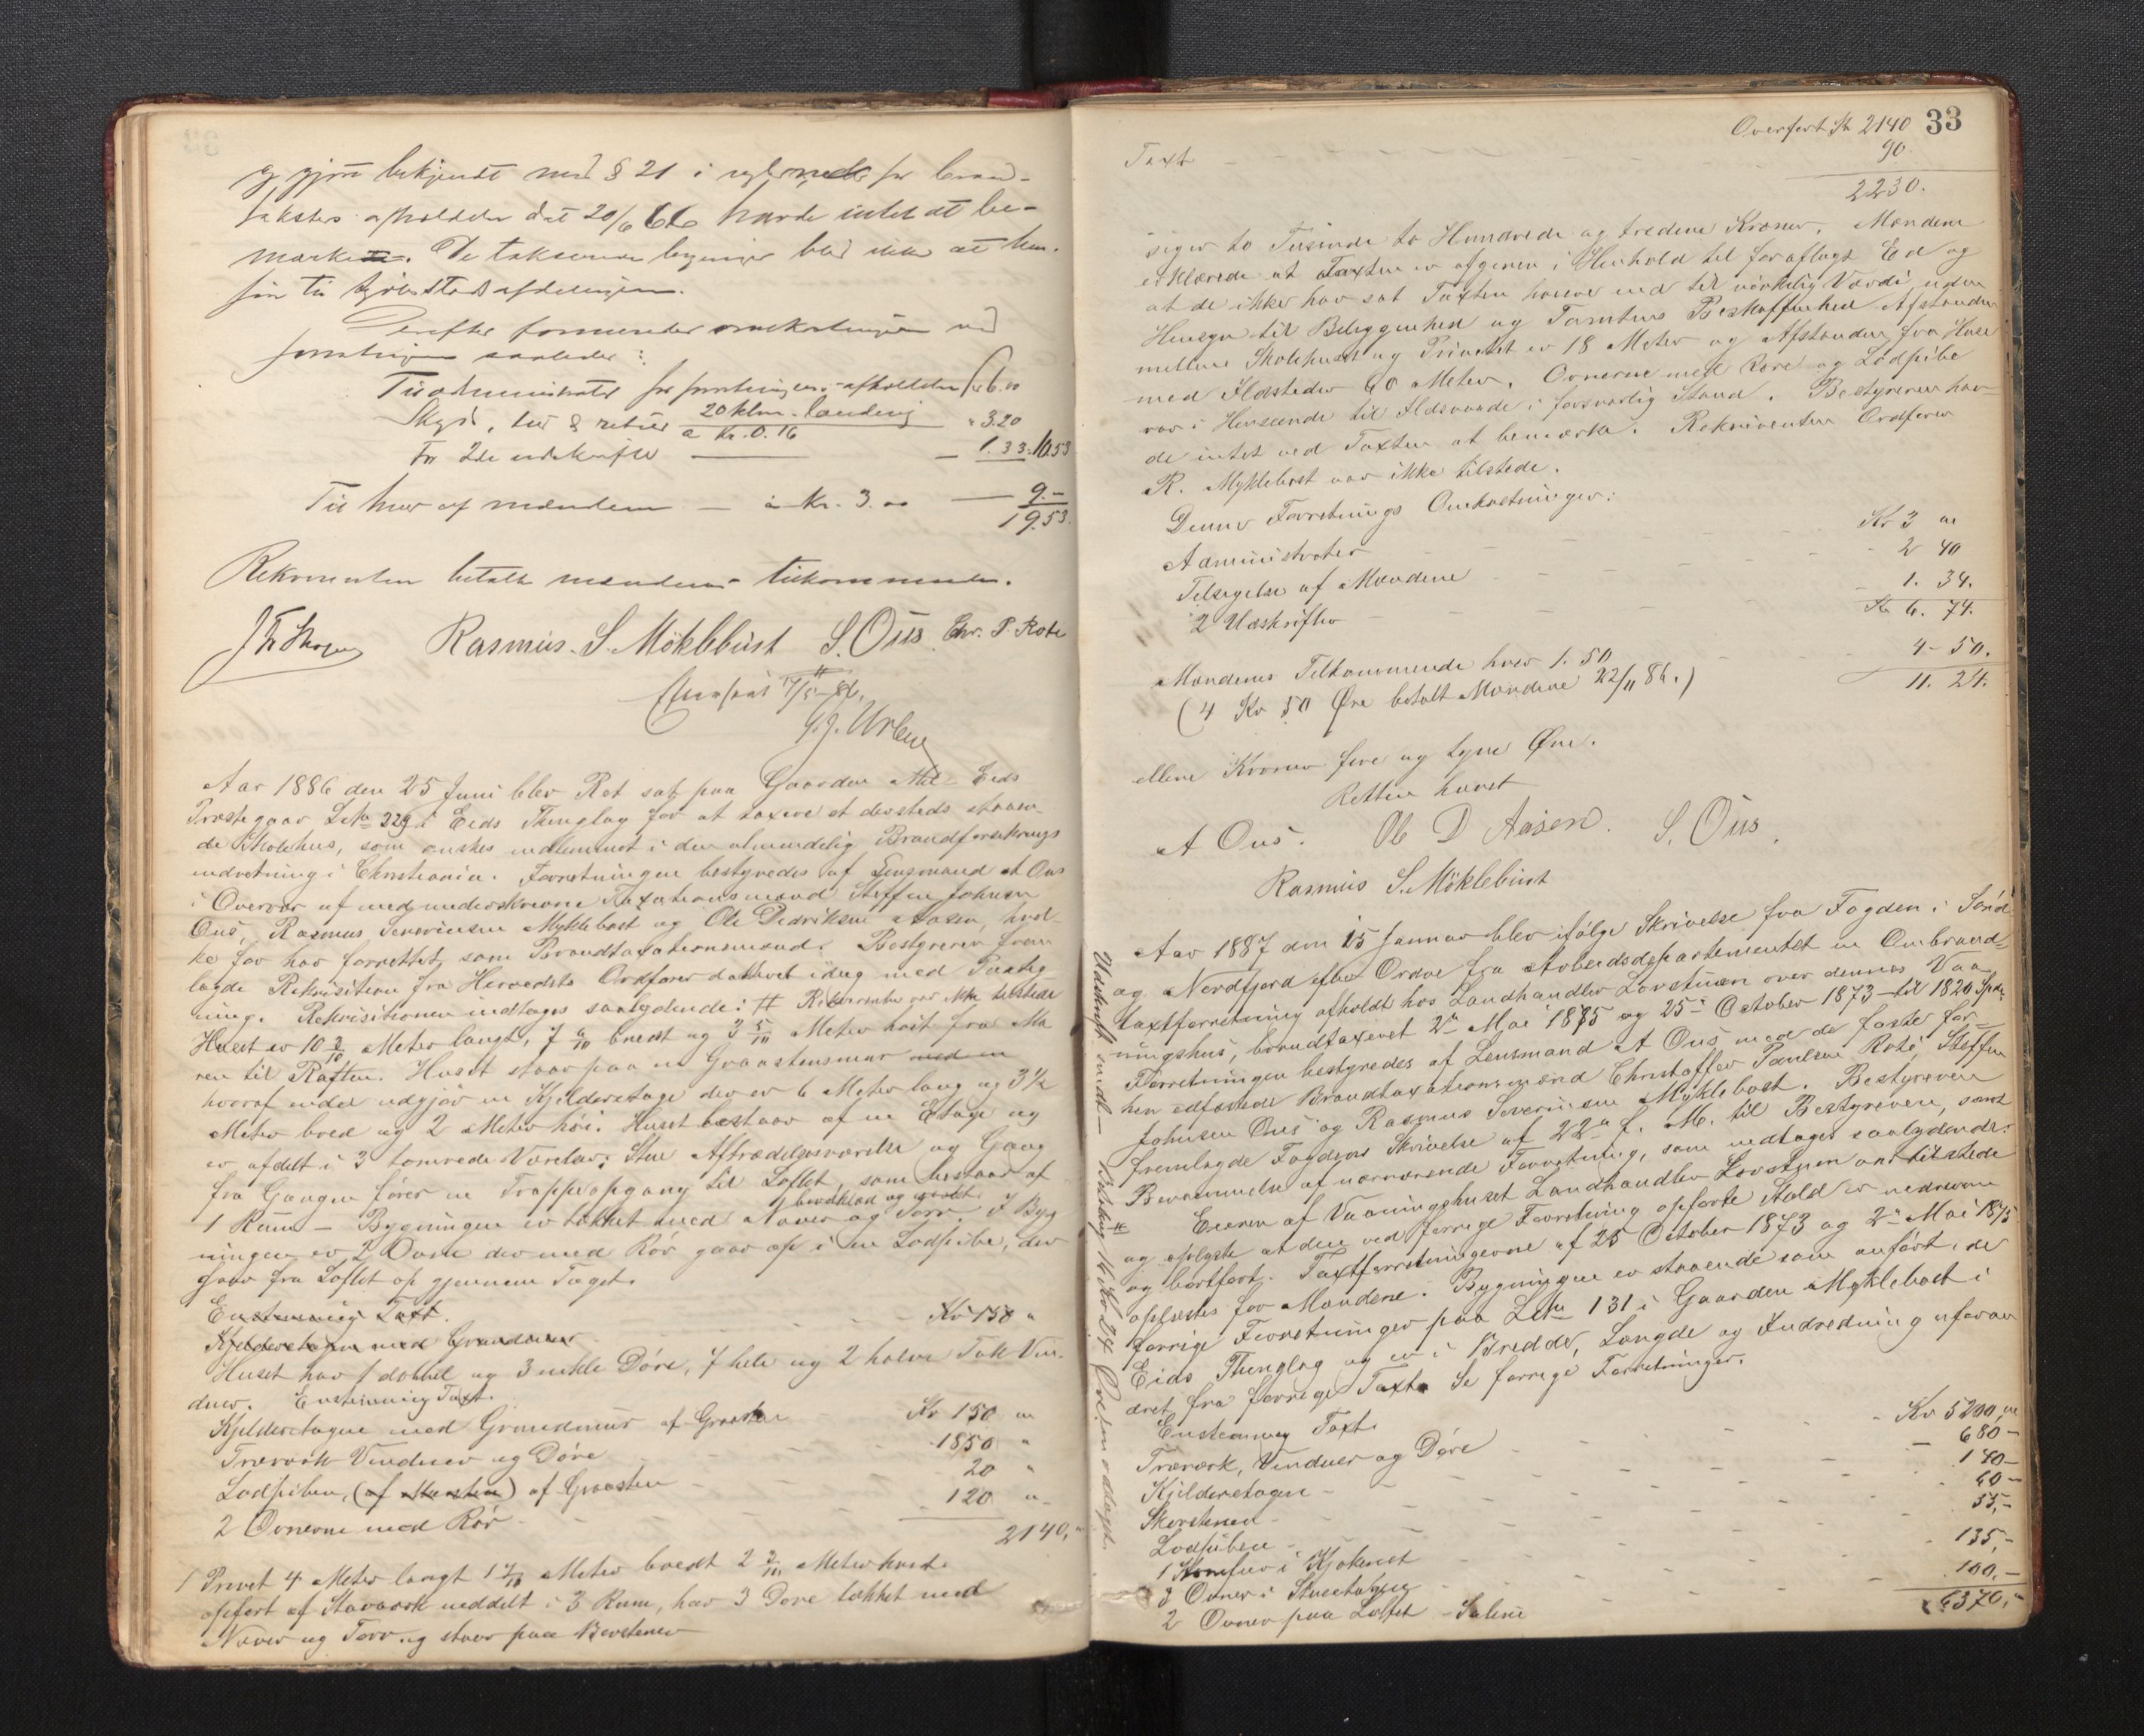 og gjort bekjendt med § 21 i reglerne for brand-
takster afholdelse dat 20/6 66 havde intet at be-
mærke. De takserede bygninger blev ikke at hen-
føre til Kjøbstadsafdelingen.
Derefter
saaledes:
Til administrator for forretningens afholdelse Kr 6.00
Skyds, tur & retur 20 klm. landvei
a Kr. 0.16 " 3.20
For 2de udskrifter — 1.33. 10.53
Til hver af mændene — a Kr. 3.00 — 9.-
19.53.
Rekvirenten betalte mændenes tilkommende.
Rasmus. S. Möklebust S. Ous. Chr. P. Roti
Aar 1886 den 25 Juni blev Ret sat paa Gaarden Mel-Eids
Prestegaar Lbn 229 i Eids Thinglag for at taxere et dersteds staaen-
de Skolehus, som ønskes indlemmet i den almindelig Brandforsikrings
indretning i Christiania. Forretningen bestyredes af Lensmand A Ous
i Overvær af med underskrevne Taxationsmænd Steffen Johnsen
Ous, Rasmus Severinsen Myklebost og Ole Dedriksen Aasen, hvil-
ke før har forrettet som Brandtaxationsmænd. Bestyreren frem-
lagde Rekvisition fra Herredets Ordfører dateret idag med Paateg-
ning. Rekvisitionen indtages saalydende: # Rekvirenten var ikke tilstede
Huset er 10 3/10 Meter langt, 7 bredt og 3 5/10 Meter høit fra Mu
ren til Raften. Huset staar paa en Graastensmur med en
hvoraf endel udgjør en Kjelderetage der er 6 Meter lang og 3 1/2
Meter bred og 2 Meter høi. Huset bestaar af en Etage og
er afdelt i 3 tømrede Værelser: Stue Aftrædelsesværelse og Gang
fra Gangen fører en Trappeopgang til Loftet, som bestaar af
1 Rum — Bygningen er tækket med Næver og Torv. I Byg
bordklæd og malet
ningen er 2 Ovne der med Rør gaar op i en Lodpibe, der
gaar fra Loftet op gjennem Taget.
Enstemmig Taxt.
Kjelderetagen med Grundmur Kr 150 "
Huset har 1 dobbel og 3 enkle Døre, 7 hele og 2 halve Fak Vin-
duer. Enstemmig Taxt.
Kjelderetagen med Grundmur af Graasten Kr 150 "
Træværk Vinduer og Døre 1850 "
Lodpiben, (af Mursten) af Graasten 20 "
2 Ovnene med Rør 120 "
2140, "
1 Privet 4 Meter langt 1 7/10 Meter bredt 2 3/10 Meter høit.
opført af Stavværk inddelt i 3 Rum, har 3 Døre tækket med
Næver og Torv og staar paa
Overført Kr 2140 33
Taxt — 90.
2230.
siger to Tusinde to Hundrede og tredive Kroner. Mændene
erklærede at Taxten er afgiven i Henhold til før aflagt Ed og
at de ikke har sat Taxten høiere end til virkelig Værdi uden
Hensyn til Beliggenhed og Tomtens Beskaffenhed Afstanden
mellem Skolehuset og Privetet er 18 Meter og Afstanden fra Huse
med Ildsteder 60 Meter. Ovnerne med Røre og Lodpibe
var i Henseende til Ildsvaade i forsvarlig Stand. Bestyreren hav-
de intet ved Taxten at bemærke. Rekvirenten Ordfører
R. Myklebost var ikke tilstede.
Denne Forretnings Omkostninger:
Administrator Kr 3 "
Tilsigelse af Mændene 2 40
2 Udskrifter 1. 34.
Kr 6. 74.
Mændenes Tilkommende hver 1. 50 4-50.
(4 Kr 50 Øre betalt Mændene 22/11 86.) 11. 24.
elleve Kroner fire og tyve Øre.
Retten hævet
A Ous. Ole D Aasen. S. Ous.
Rasmus S. Möklebust
Aar 1887 den 15 Januar blev ifølge Skrivelse fra Fogden i Sønd
og Nordfjord efter Ordre fra Arbeidsdepartementet en Ombrand-
taxtforretning afholdt hos Landhandler Lovstuen over dennes Vaa-
ningshus, brandtaxeret 2n Mai 1875 og 25 October 1873 til 1820 Spdr.
Forretningen bestyredes af Lensmand A Ous med de faste før-
hen edfæstede Brandtaxationsmænd Christoffer Paulsen Roti, Steffen
Johnsen Ous og Rasmus Severinsen Myklebost. Bestyreren
fremlagde Fogdens Skrivelse af 22n f. M. til Bestyreren, samt
Berammelse af nærværende Forretning, som indtages saalydende:
# Eieren af Vaaningshuset Landhandler Lovstuen var tilstede
og oplyste at den ved forrige Forretning opførte Stald er nedreven
og bortført. Taxtforretningerne af 25 October 1873 og 2n Mai 1875
oplæstes for Mændene. Bygningen er staaende som anført i de
forrige Forretninger paa Lbn 131 i Gaarden Myklebost i
Eids Thinglag og er i Bredde, Længde og Indredning uforan
dret fra forrige Taxt. Se forrige Forretninger.
Enstemmig Taxt.
Træværk, Vinduer og Døre Kr 5200, "
Kjelderetagen 680 -
Skorstenen 140 -
Lodpiben 60 -
1 Komfur i Kjøkkenet 55, -
3 Ovner i Stueetagen 135, -
2 Ovner paa Loftet - Salene 100, -
6370, -
Udskrift sendt